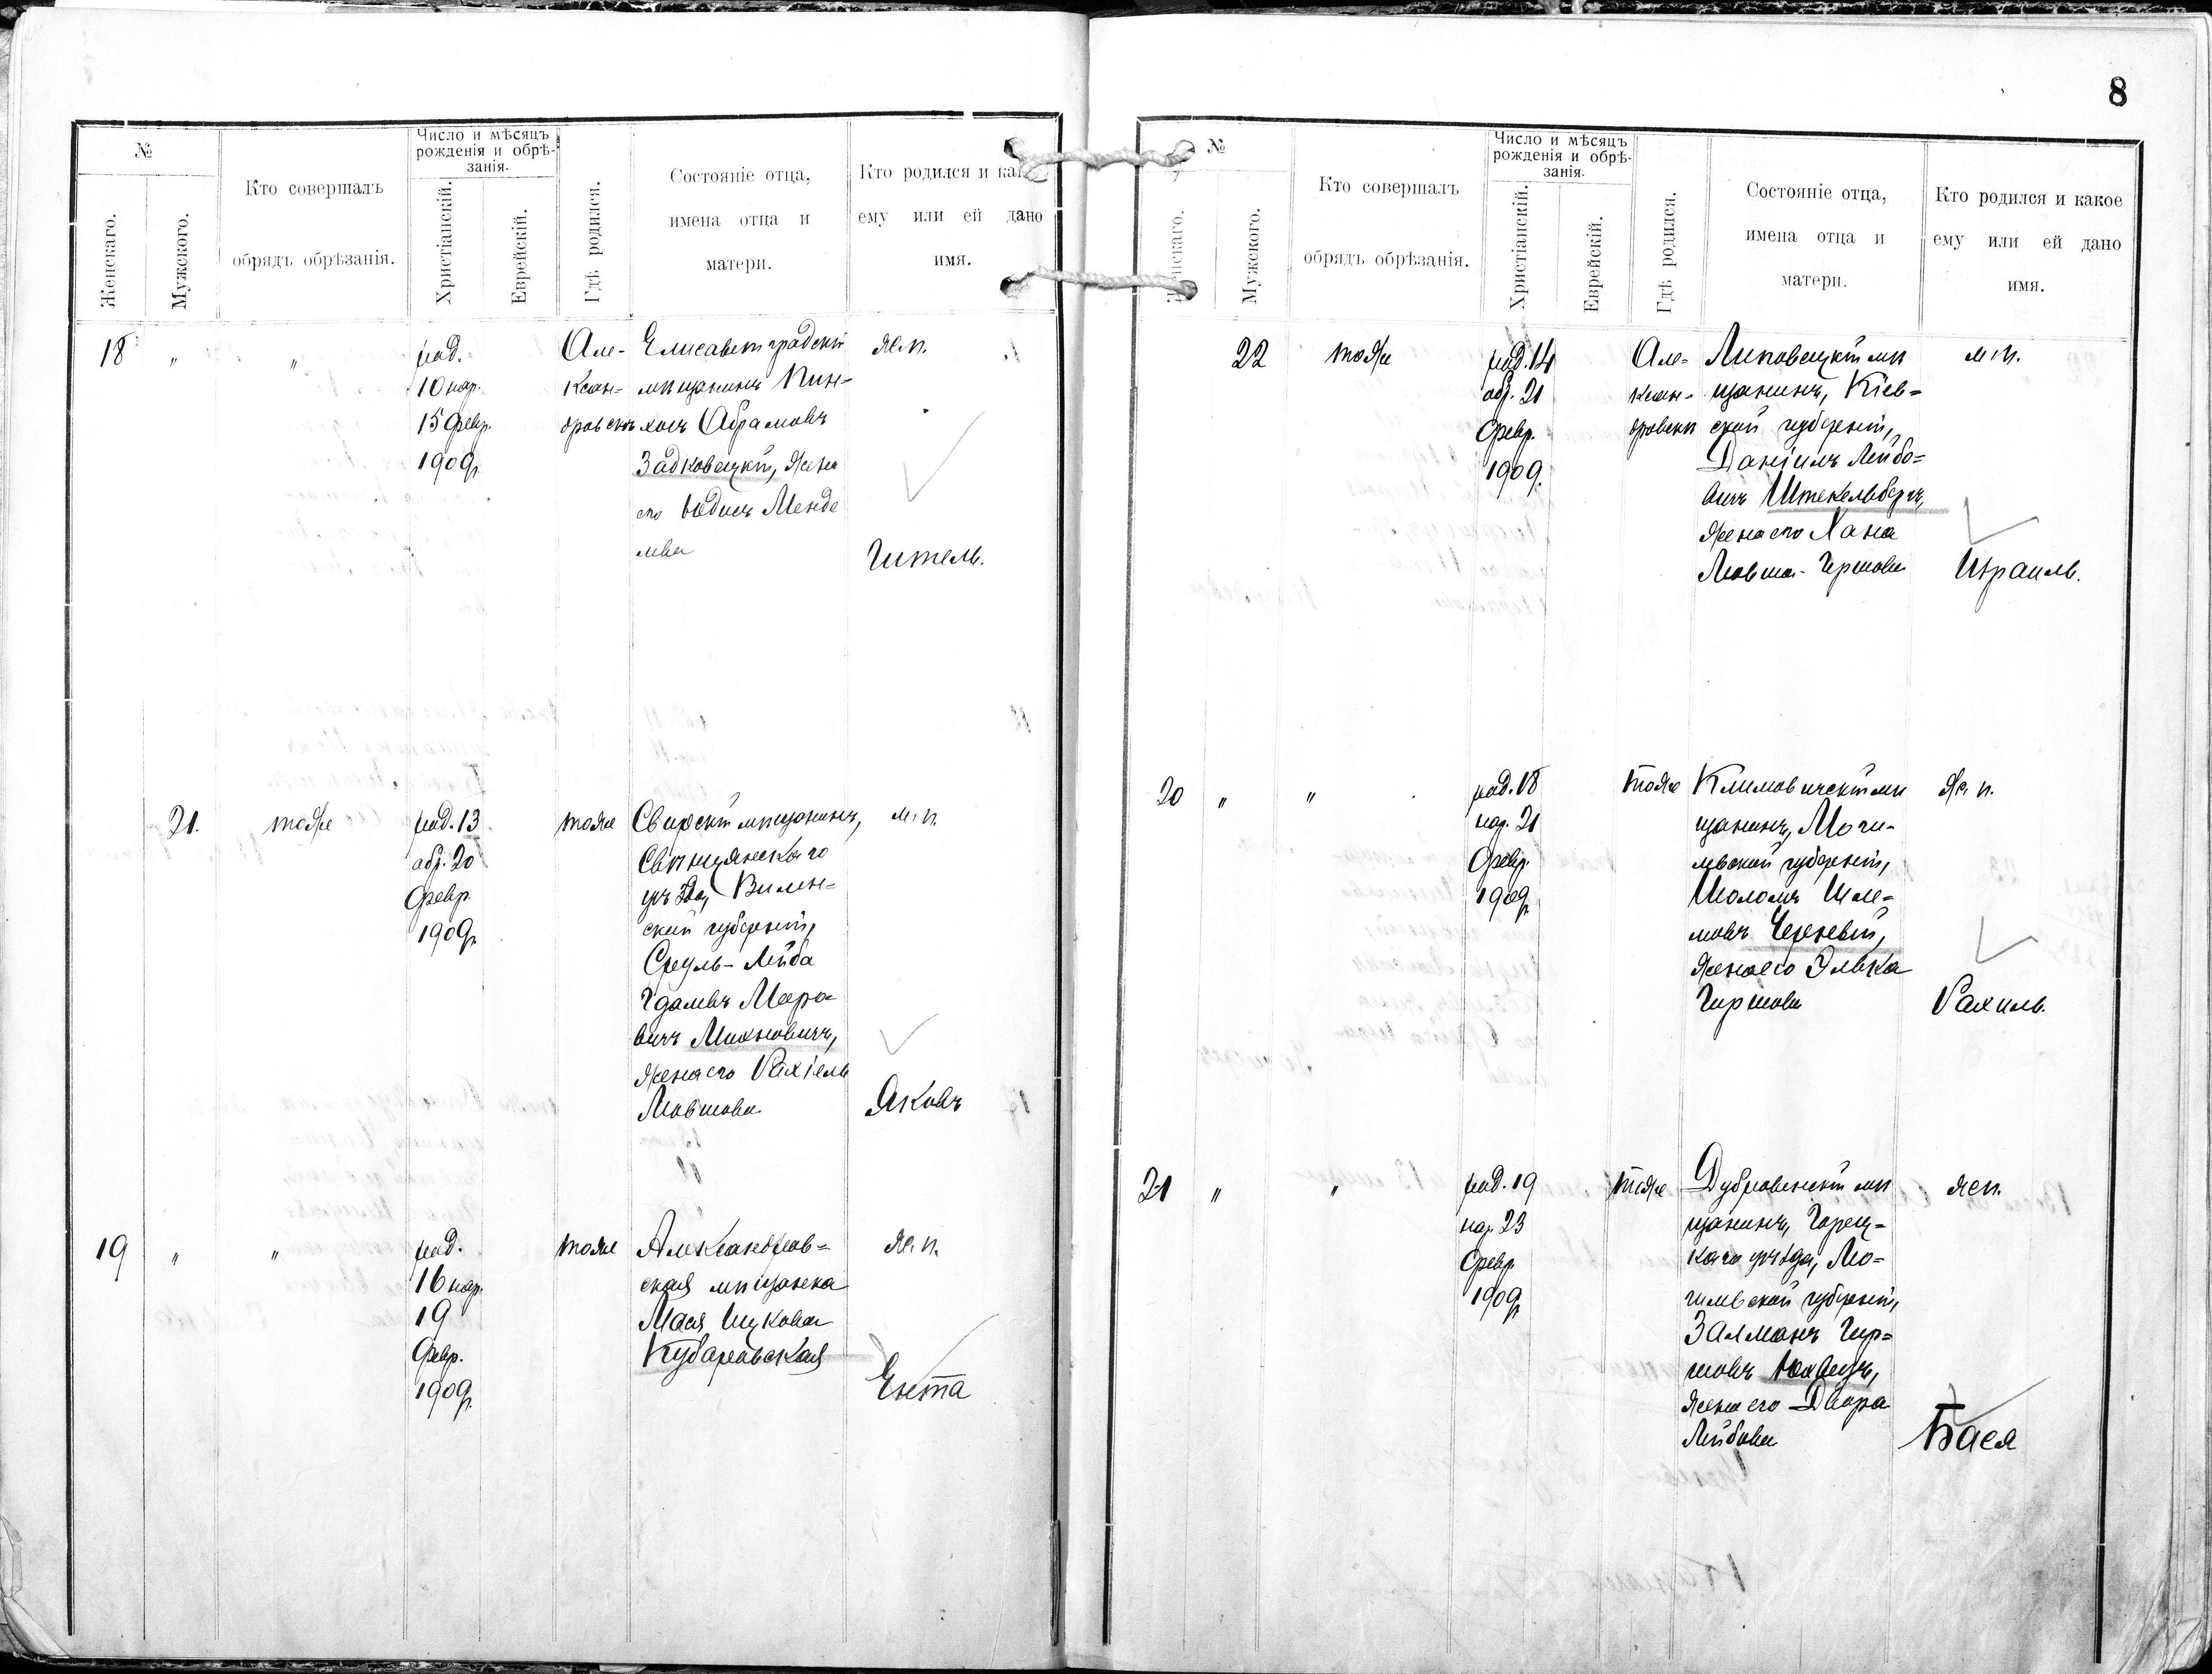 №
Женскаго.
Мужского.
Кто совершалъ
обрядъ обрѣзанія.
Число и мѣсяцъ
рожденія и обрѣ-
занія.
Христіанскій.
Еврейскій.
Гдѣ родился.
Состояніе отца,
имена отца и
матери.
Кто родился и как
ему или ей дано
имя.
18 " "
род.
10 нар.
15 февр.
1909 г.
Але-
ксан-
дровскъ
Елисаветградскій
мѣщанинъ Пин-
хосъ Абрамовъ
Задковецкій, жена
его Мендe
лева
ж.п.
Гитель.
21. тоже
род. 13
обр. 20
февр.
1909 г.
тоже
Свирскій мѣщанинъ,
Свѣнцянскаго
уѣзда, Вилен-
ской губерніи,
Сруль-Лейба
Меро-
вичъ Михновичъ,
жена его Рахіель
Мовшова
м.п.
Яковъ
19 " "
род.
16 нар.
19
февр.
1909 г.
тоже
Александров-
ская мѣщанка
Мася Ицкова
Кубаровская
ж.п.
Ента
8
№
Женскаго.
Мужского.
Кто совершалъ
обрядъ обрѣзанія.
Число и мѣсяцъ
рожденія и обрѣ-
занія.
Христіанскій.
Еврейскій.
Гдѣ родился.
Состояніе отца,
имена отца и
матери.
Кто родился и какое
ему или ей дано
имя.
22 тоже
род. 14
обр. 21
февр.
1909.
Але-
ксан-
дровскъ
Липовецкій мѣ
щанинъ, Кіев-
ской губерніи,
Даніилъ Лейбо-
вичъ Штекельбергъ,
жена его Хана
Мовша-Гершова
м.п.
Израиль.
20 " "
род. 18
нар. 21
февр.
1909 г.
тоже
Климовичскій мѣ
щанинъ, Моги-
левской губерніи,
Шоломъ Шле-
мовъ Черневій,
жена его Элька
Гиршова
ж.п.
Рахиль.
21 " "
род. 19
нар. 23
февр.
1909 г.
тоже
Дубровенскій мѣ
щанинъ, Горец-
каго уѣзда, Мо-
гилевской губерніи,
Залманъ Гир-
шовъ
жена его Двора
Лейбова
ж.п.
Бася